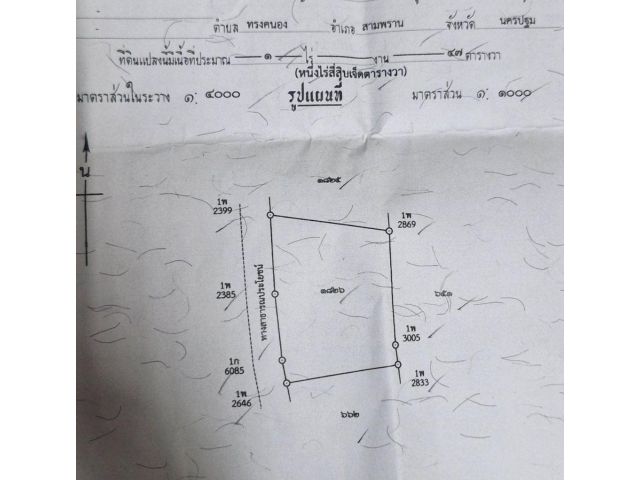 ตำบล ทรงคนอง อำเภอ สามพราน จังหวัด นครปฐม
ที่ดินแปลงนี้มีเนื้อที่ประมาณ ๑ ไร่ งาน ๔๗ ตารางวา
(หนึ่งไร่สี่สิบเจ็ดตารางวา)
มาตราส่วนในระวาง ๑: ๔๐๐๐ รูปแผนที่ มาตราส่วน ๑: ๑๐๐๐
น
๑๘๒๕
1พ
2399
1พ
2869
1พ
2385
ทางสาธารณประโยชน์
๑๘๒๖
๖๕๑
1พ
3005
1ก
6085
1พ
2833
1พ
2646
๖๖๒